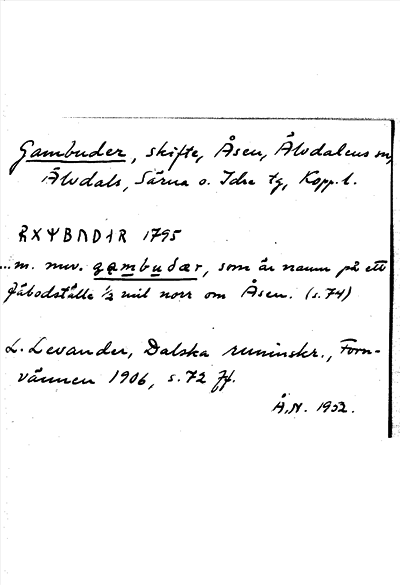 Gambuder, skifte, Åsen, Älvdalens sn,
Älvdals, Särna o. Idre tg, Kopp. l.
ᚱᚷᛘᛒᚢᚦᛆᚱ 1795
...m. nuv. gambudær, som är namn på ett
fäbodställe ½ mil norr om Åsen. (s. 74)
L. Levander, Dalska runinskr., Forn-
vännen 1906, s. 72 ff.
Å.N. 1932.